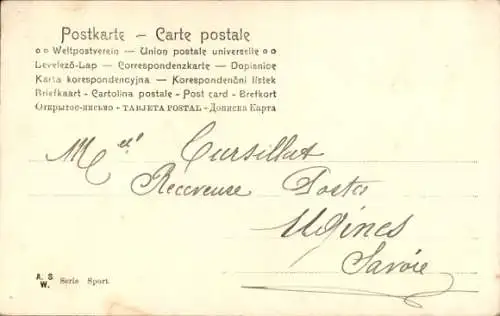 Postkarte – Carte postale
Weltpostverein – Union postale universelle
Levelező-Lap – Correspondenzkarte – Dopisnice
Karta korespondencyjna – Korespondenční lístek
Briefkaart - Cartolina postale - Post card - Brefkort
Открытое-письмо - TARJETA POSTAL - Дописна Карта
M elle Cursillat
Receveuse Postes
Ugines
Savoie
A. S.
W. Serie Sport